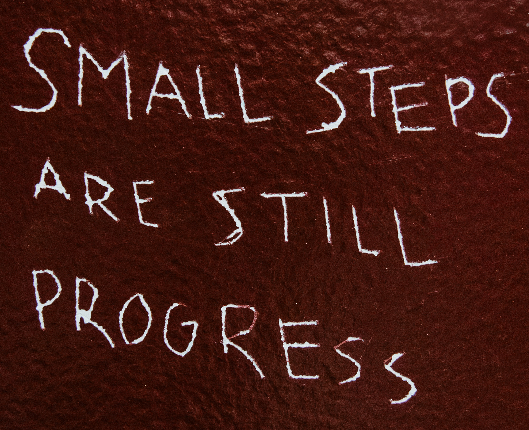 SMALL STEPS
ARE STILL
PROGRESS